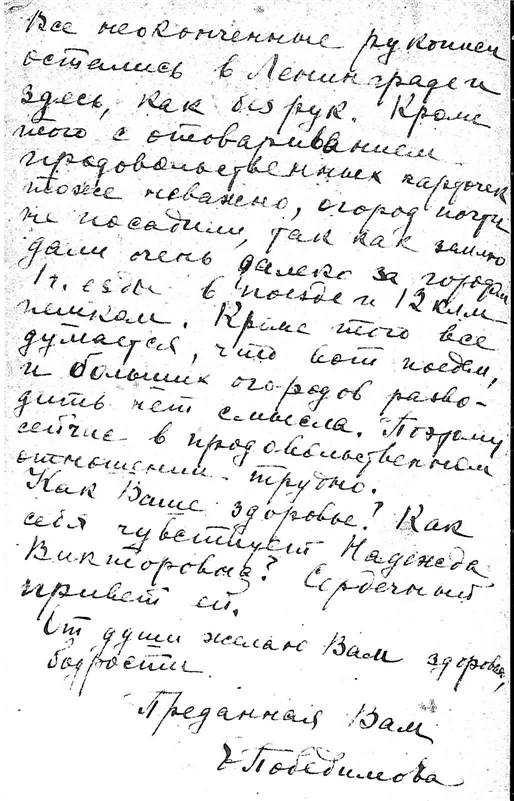 Все неоконченные рукописи
остались в Ленинграде и
здесь, как без рук. Кроме
того с отовариванием
продовольственных карточек
тоже неважно, огород почти
не посадили, так как землю
дали очень далеко за городом
1 ч. езды в поезде и 12 клм
пешком. Кроме того все
думается, что вот поедем,
и больших огородов разво-
дить нет смысла. Поэтому
сейчас в продовольственном
отношении трудно.
Как Ваше здоровье? Как
себя чувствует Надежда
Викторовна? Сердечный
привет ей.
От души желаю Вам здоровья,
бодрости
Преданная Вам
Победимова